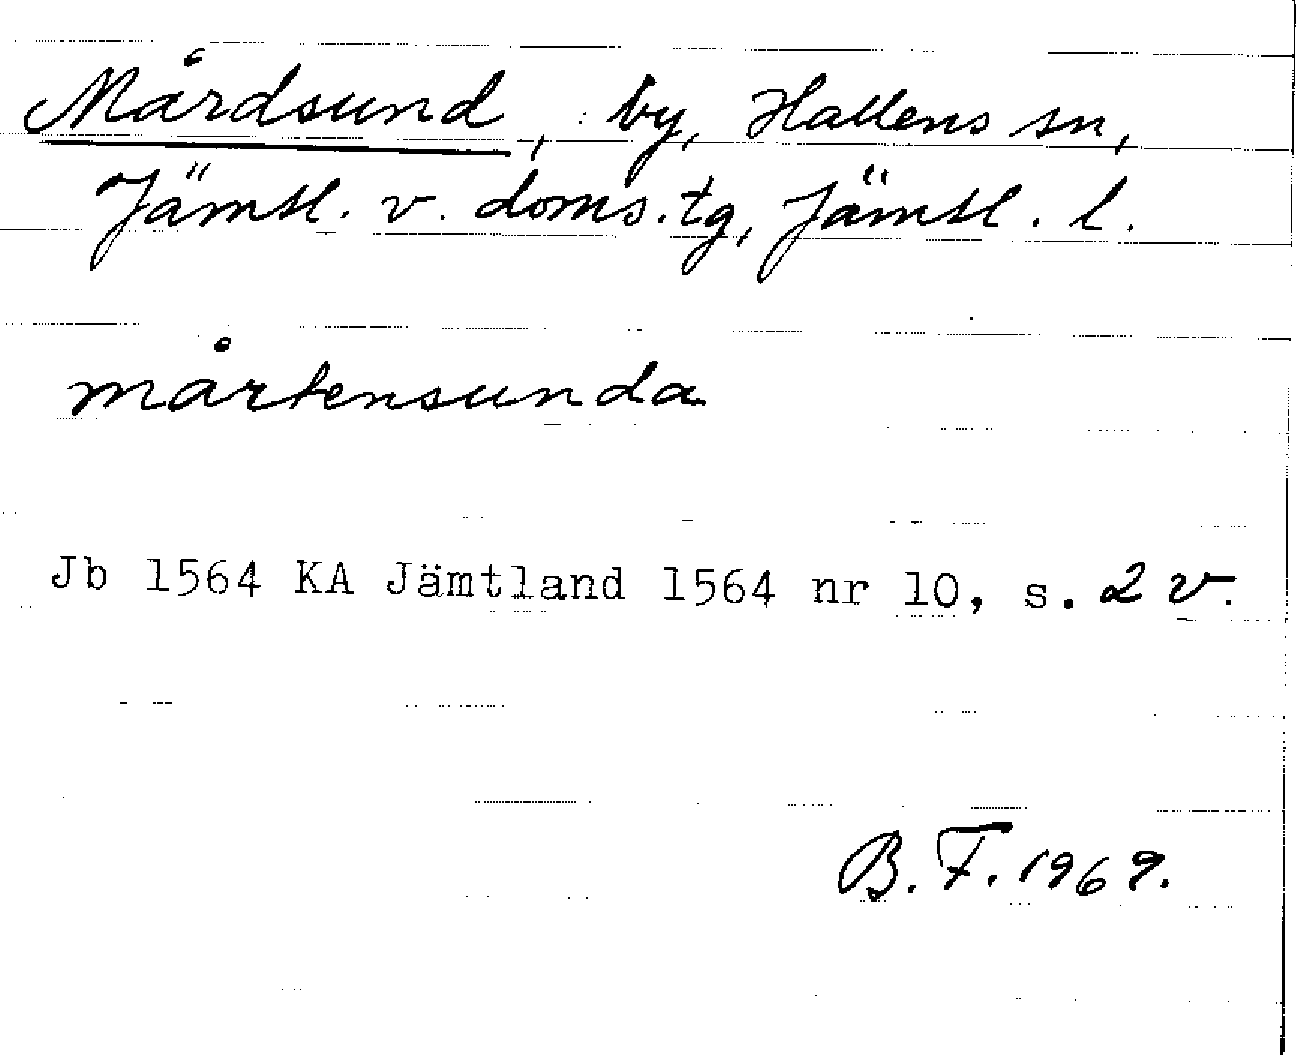 Mårdsund, by, Hallens sn,
Jämtl. v. doms.tg, Jämtl. l.
mårtensunda
Jb 1564 KA Jämtland 1564 nr 10, s. 2 v.
B. F. 1969.